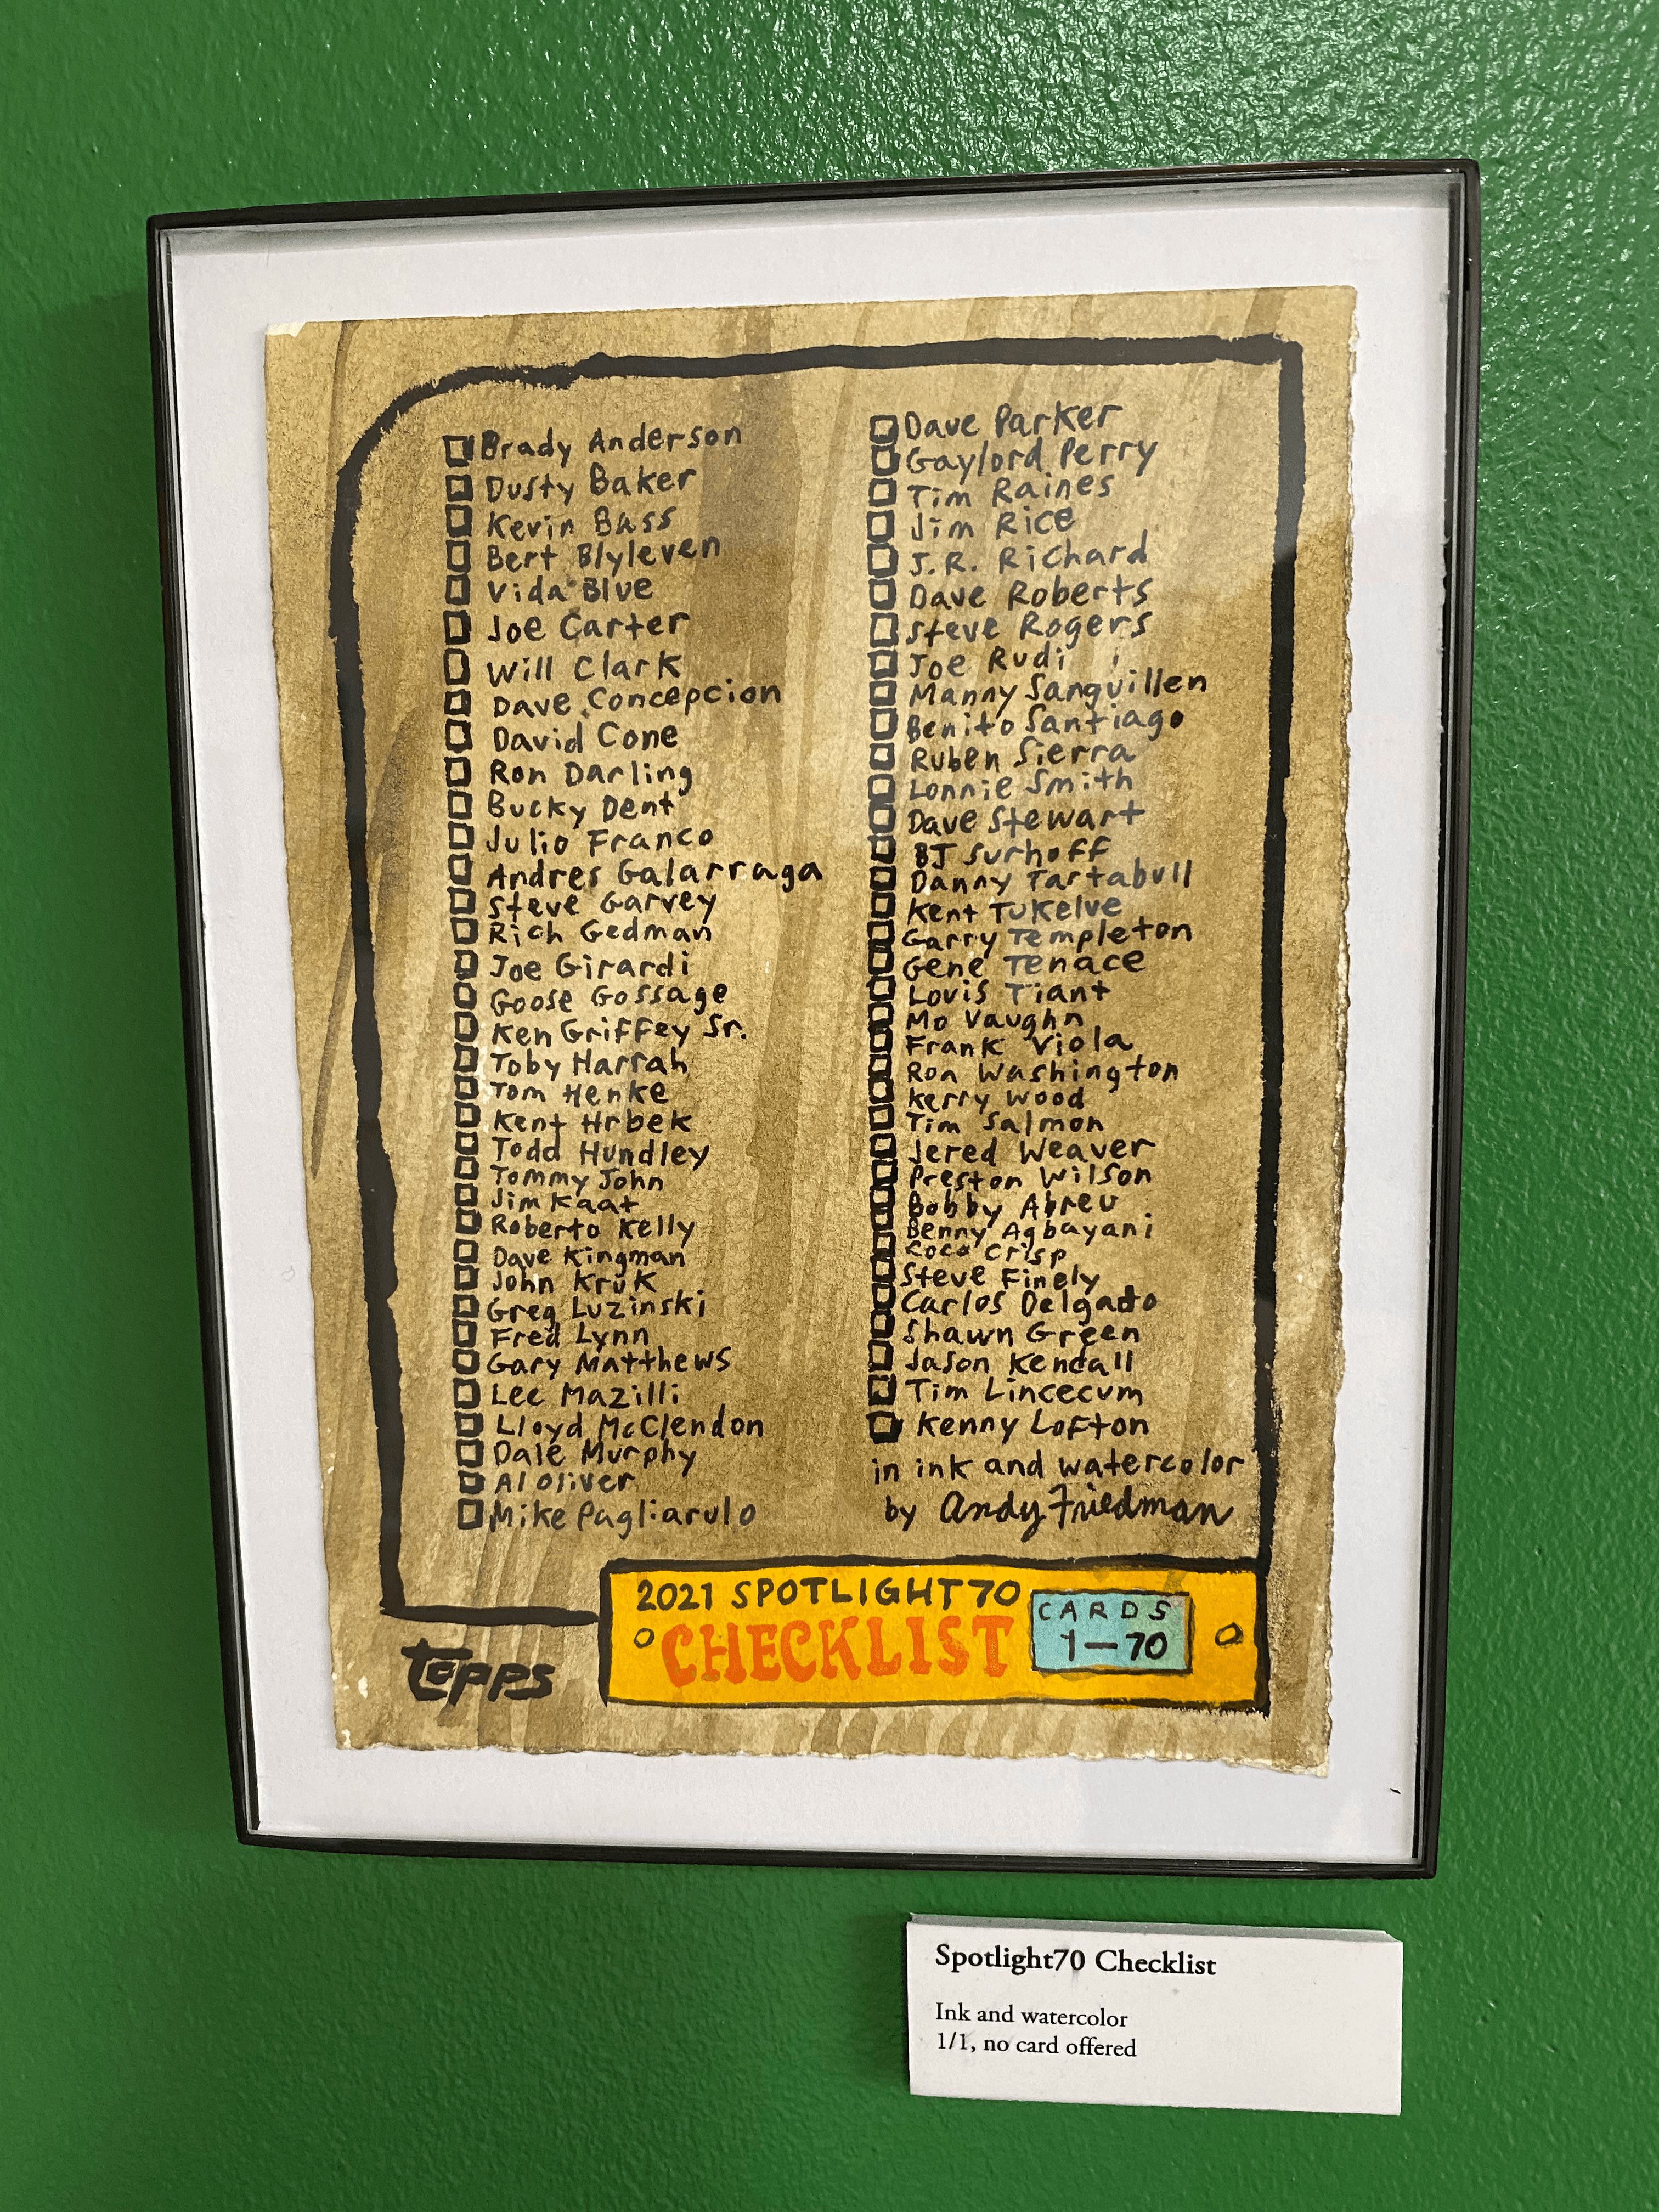 Brady Anderson
Dusty Baker
Kevin Bass
Bert Blyleven
Vida Blue
Joe Carter
Will Clark
Dave Concepcion
David Cone
Ron Darling
Bucky Dent
Julio Franco
Andres Galarraga
Steve Garvey
Rich Gedman
Joe Girardi
Goose Gossage
Ken Griffey Sr.
Toby Harrah
Tom Henke
Kent Hrbek
Todd Hundley
Tommy John
Jim Kaat
Roberto Kelly
Dave Kingman
John Kruk
Greg Luzinski
Fred Lynn
Gary Matthews
Lee Mazilli
Lloyd McClendon
Dale Murphy
Al Oliver
Mike Pagliarulo
Dave Parker
Gaylord Perry
Tim Raines
Jim Rice
J.R. Richard
Dave Roberts
Steve Rogers
Joe Rudi
Manny Sanguillen
Benito Santiago
Ruben Sierra
Lonnie Smith
Dave Stewart
BJ Surhoff
Danny Tartabull
Kent Tukelve
Garry Templeton
Gene Tenace
Louis Tiant
Mo Vaughn
Frank Viola
Ron Washington
Kerry Wood
Tim Salmon
Jered Weaver
Preston Wilson
Bobby Abreu
Benny Agbayani
Coco Crisp
Steve Finely
Carlos Delgado
Shawn Green
Jason Kendall
Tim Lincecum
Kenny Lofton
in ink and watercolor
by Andy Friedman
2021 SPOTLIGHT70
CHECKLIST
CARDS
1-70
Topps
Spotlight70 Checklist
Ink and watercolor
1/1, no card offered